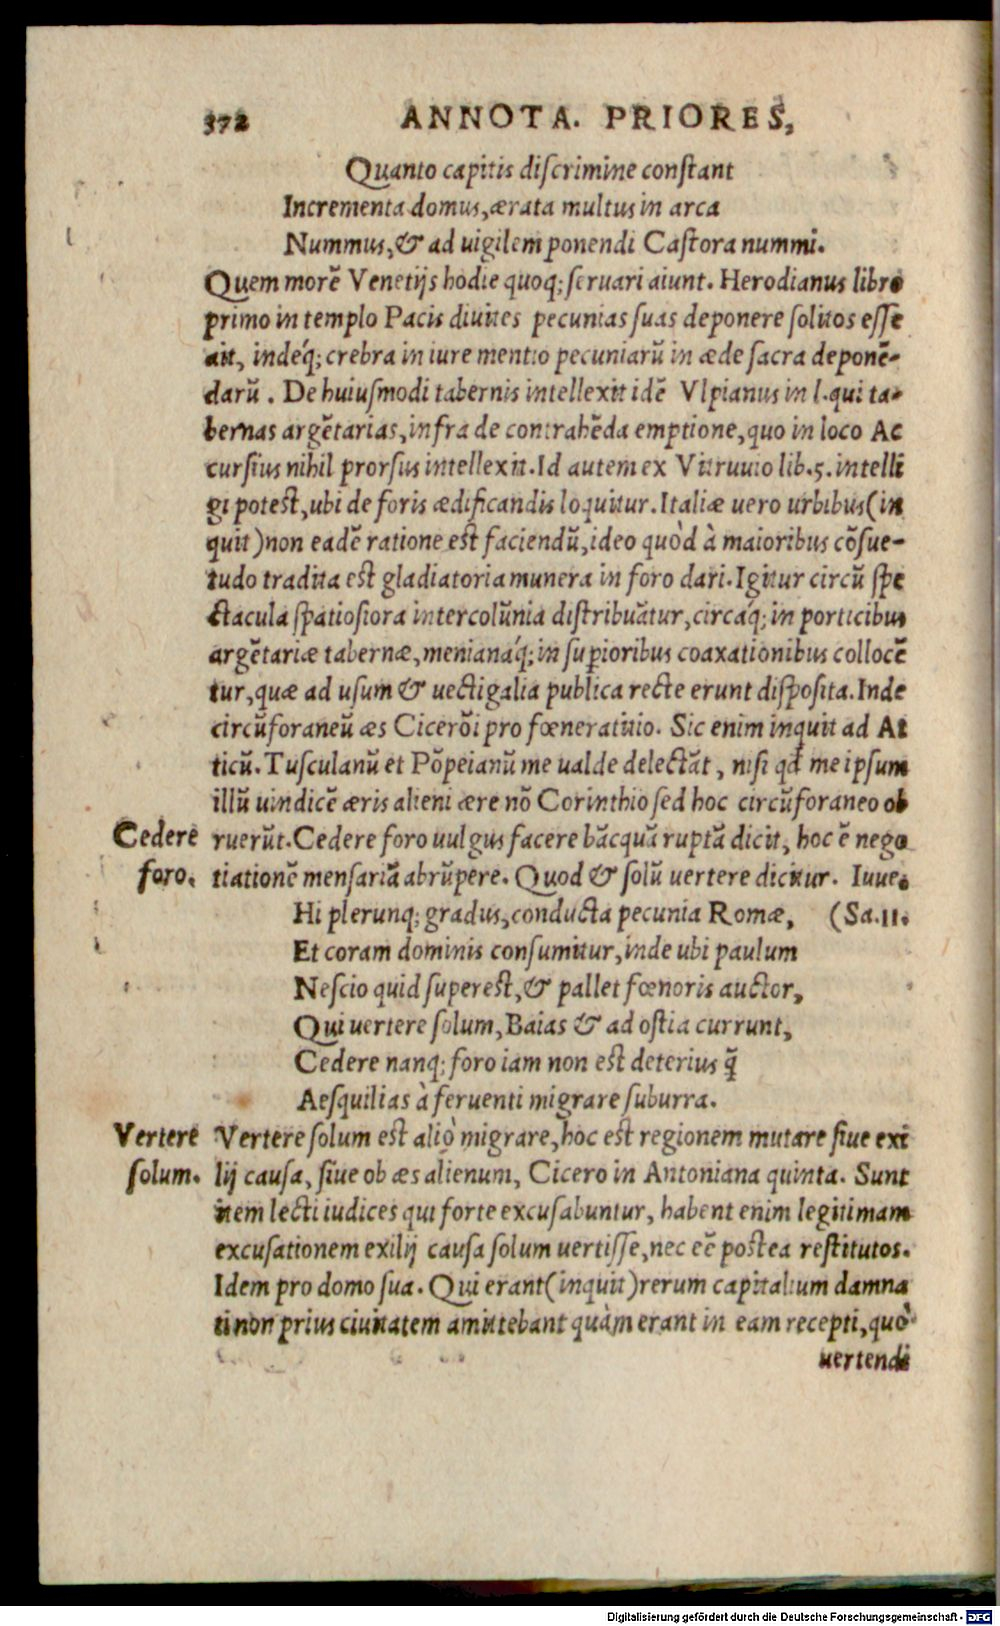 372 ANNOTA. PRIORES,
Quanto capitis discrimine constant
Incrementa domus, ærata multus in arca
Nummus, & ad uigilem ponendi Castora nummi.
Quem morē Venetijs hodie quoq; seruari aiunt. Herodianus libro
primo in templo Pacis diuites pecunias suas deponere solitos esse
ait, indeq́; crebra in iure mentio pecuniarū in æde sacra deponē-
darū. De huiusmodi tabernis intellexit idē Vlpianus in l. qui ta-
bernas argētarias, infra de contrahēda emptione, quo in loco Ac
cursius nihil prorsus intellexit. Id autem ex Vitruuio lib. 5. intelli
gi potest, ubi de foris ædificandis loquitur. Italiæ uero urbibus (in
quit) non eadē ratione est faciendū, ideo quòd à maioribus cōsue-
tudo tradita est gladiatoria munera in foro dari. Igitur circū spe
ctacula spatiosiora intercolūnia distribuātur, circaq́; in porticibus
argētariæ tabernæ, menianaq́; in superioribus coaxationibus collocē
tur, quæ ad usum & uectigalia publica recte erunt disposita. Inde
circūforaneū æs Cicerōi pro fœneratitio. Sic enim inquit ad At
ticū. Tusculanū et Pōpeianū me ualde delectāt, nisi qd me ipsum
illū uindicē æris alieni ære nō Corinthio sed hoc circūforaneo ob
Cedere ruerūt. Cedere foro uulgus facere bācquā ruptā dicit, hoc ē nego
foro. tiationē mensariā abrūpere. Quod & solū uertere dicitur. Iuue.
Hi plerunq; gradus, conducta pecunia Romæ, (Sa. 11.
Et coram dominis consumitur, inde ubi paulum
Nescio quid superest, & pallet fœnoris auctor,
Qui uertere solum, Baias & ad ostia currunt,
Cedere nanq; foro iam non est deterius q̄
Aesquilias à feruenti migrare suburra.
Vertere Vertere solum est aliò migrare, hoc est regionem mutare siue exi
solum. lij causa, siue ob æs alienum, Cicero in Antoniana quinta. Sunt
item lecti iudices qui forte excusabuntur, habent enim legitimam
excusationem exilij causa solum uertisse, nec eē postea restitutos.
Idem pro domo sua. Qui erant (inquit) rerum capitalium damna
ti non prius ciuitatem amittebant quàm erant in eam recepti, quò
uertendi
Digitalisierung gefördert durch die Deutsche Forschungsgemeinschaft - DFG